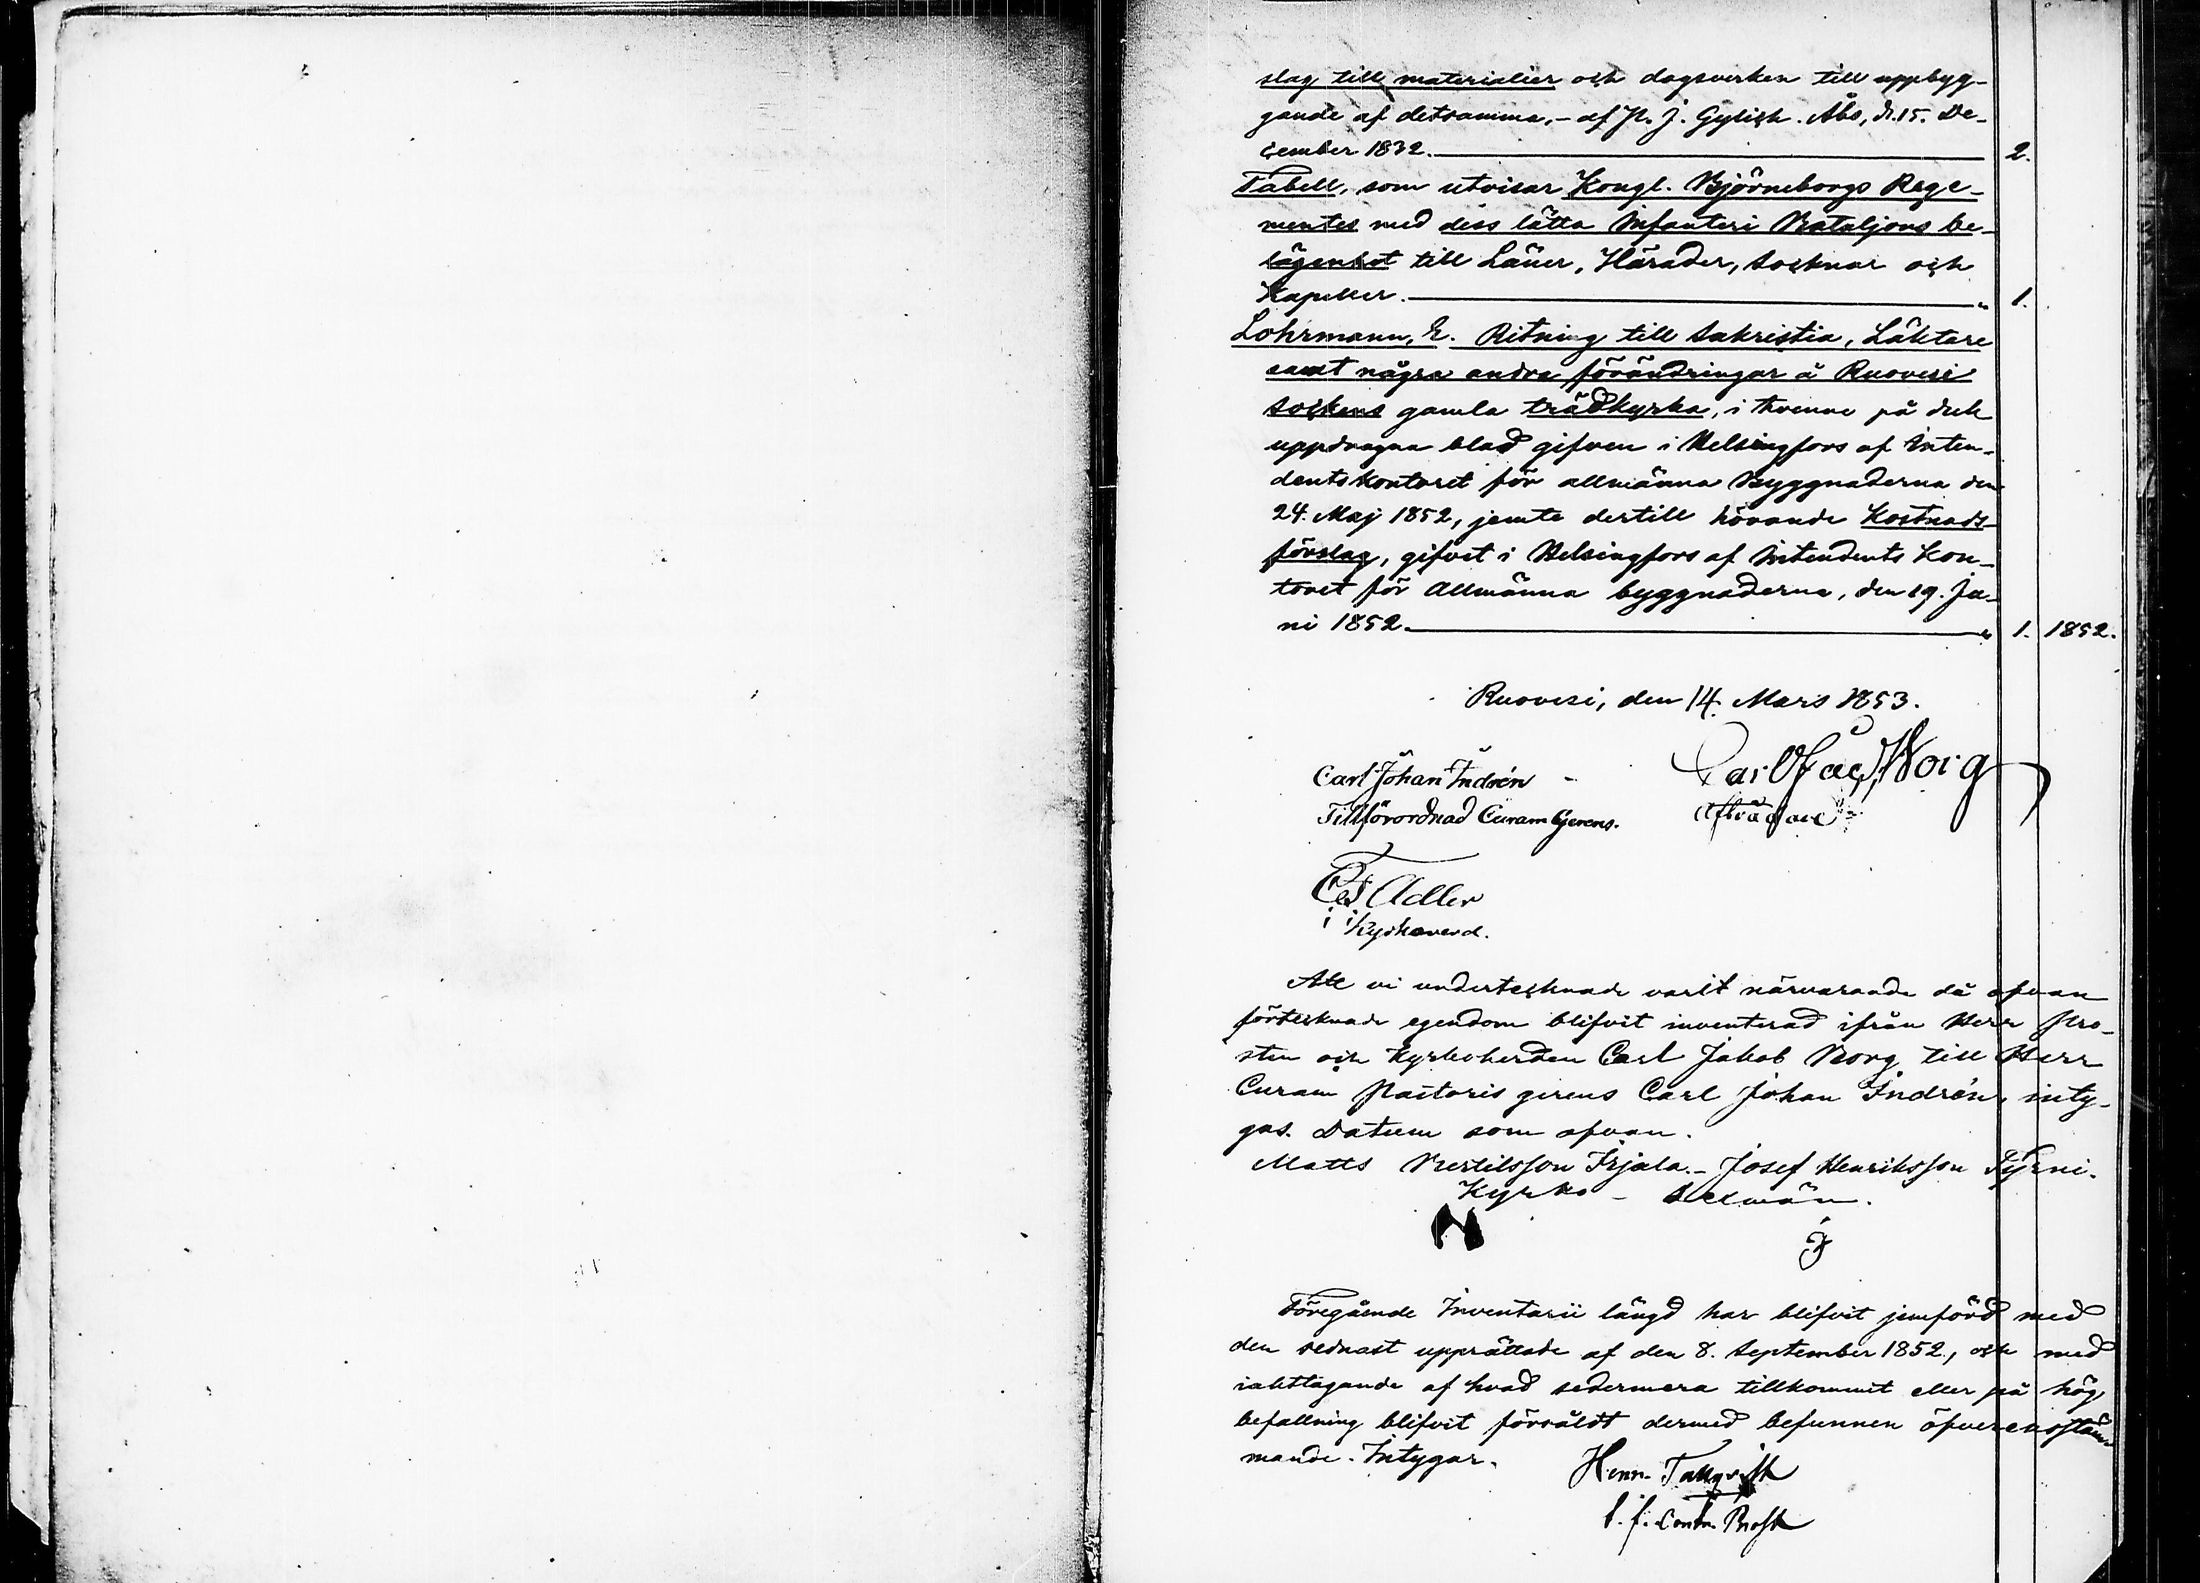 slag till materialier och dagsverken till uppbyg-
gande af detsamma, - af P. J. Gylich. Åbo, d. 15. De-
cember 1832. 2.
Tabell, som utvisar Kongl. Björneborgs Rege-
mentes med dess lätta Infanteri Bataljons be-
lägenhet till Läner, Härader, Socknar och
Kapeller. " 1.
Lohrmann, E. Ritning till Sakristia, Läktare
samt några andra förändringar å Ruovesi
Sockens gamla trädkyrka, i tvenne på duk
uppdragna blad gifven i Helsingfors af Inten-
dentskontoret för allmänna Byggnaderna den
24. Maj 1852, jemte dertill hörande Kostnads-
förslag, gifvet i Helsingfors af Intendents Kon-
toret för Allmänna byggnaderna, den 19. Ju-
ni 1852. " 1. 1852.
Ruovesi, den 14. Mars 1853.
Carl Johan Indrén - Carl Jac. Borg
Tillförordnad Curam Gerens. Afträdare
Adler
Kyrkovärd.
Att vi undertecknade varit närvarande då ofvan
förtecknade egendom blifvit inventerad ifrån Herr Pro-
sten och Kyrkoherden Carl Jakob Borg till Herr
Curam Pastoris gerens Carl Johan Indrén, inty-
gas. Datum som ofvan.
Matts Bertilsson Irjala. - Josef Henriksson Tyrni.
Kyrko - Sexmän.
Föregående Inventarii längd har blifvit jemförd med
den sednast upprättade af den 8. September 1852, och med
iakttagande af hvad sedermera tillkommit eller på hög
befallning blifvit försåldt dermed befunnen öfverensstäm-
mande. Intygar.
Henr. Tallqvist
t. f. Contr. Prost